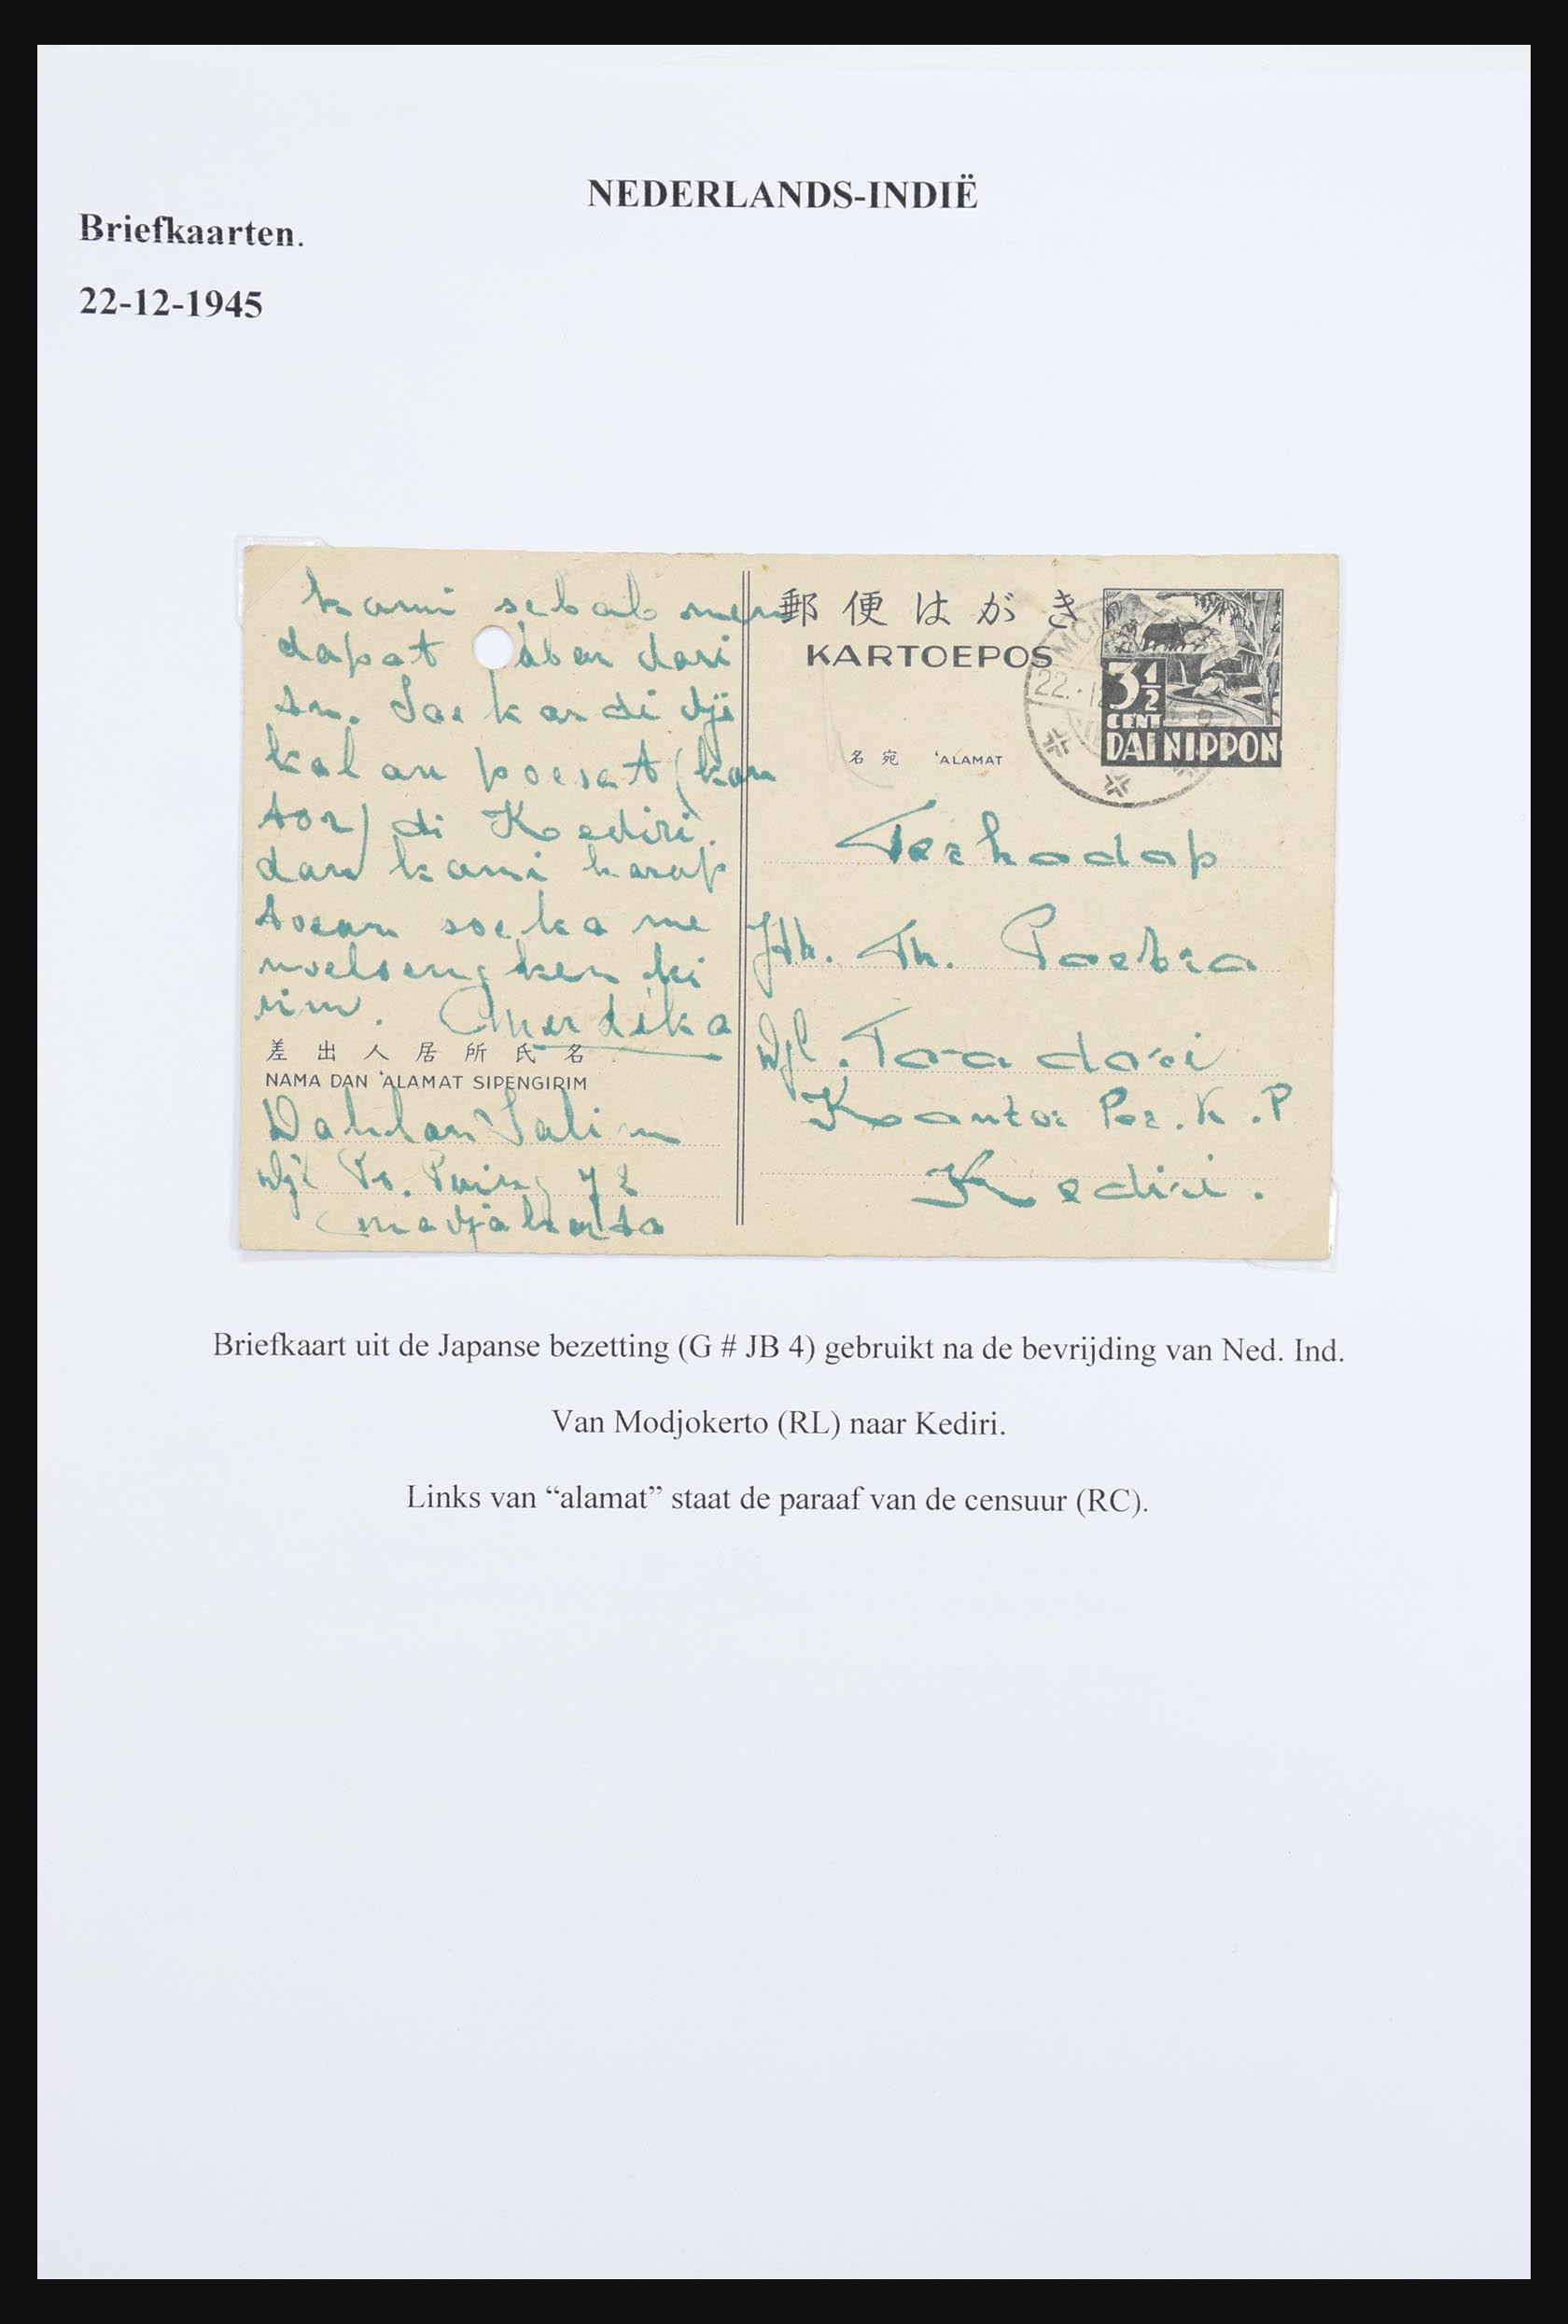 NEDERLANDS-INDIË
Briefkaarten.
22-12-1945
kami sebab men
dapat abar dari
sn. Soekardi dji
kalan poesat (kan
tor) di Kediri.
dan kami harap
toean soeka me
ki
rim. Merdika
差出人居所氏名
NAMA DAN 'ALAMAT SIPENGIRIM
Dahlan Salim
郵便はがき
KARTOEPOS
3½
CENT
DAI NIPPON
22.
名宛 'ALAMAT
Terhadap
Jth. Th. Poetra
Kantor Poe. K. P
Kediri.
Briefkaart uit de Japanse bezetting (G # JB 4) gebruikt na de bevrijding van Ned. Ind.
Van Modjokerto (RL) naar Kediri.
Links van “alamat” staat de paraaf van de censuur (RC).